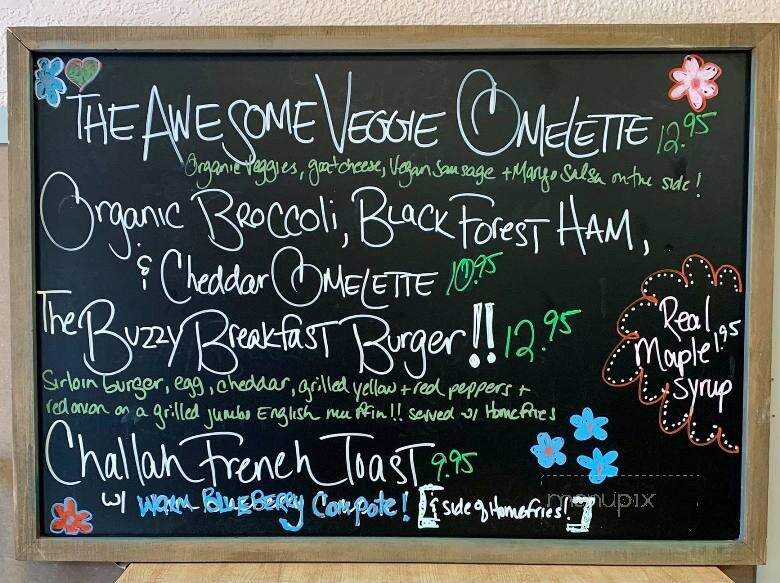 THE AWESOME VEGGIE OMELETTE 12.95
Organic veggies, goat cheese, Vegan Sausage + Mango Salsa on the side!
Organic BROCCOLi, BLACK FOREST HAM,
& Cheddar OMELETTE 10.95
The Buzzy Breakfast Burger!! 12.95
Sirloin burger, egg, cheddar, grilled yellow + red peppers +
red onion on a grilled jumbo English muffin!! served w/ Homefries
Real
Maple 1.95
syrup
Challah French Toast 9.95
w/ WARM BLUEBERRY Compote! & Side of Homefries!
menupix